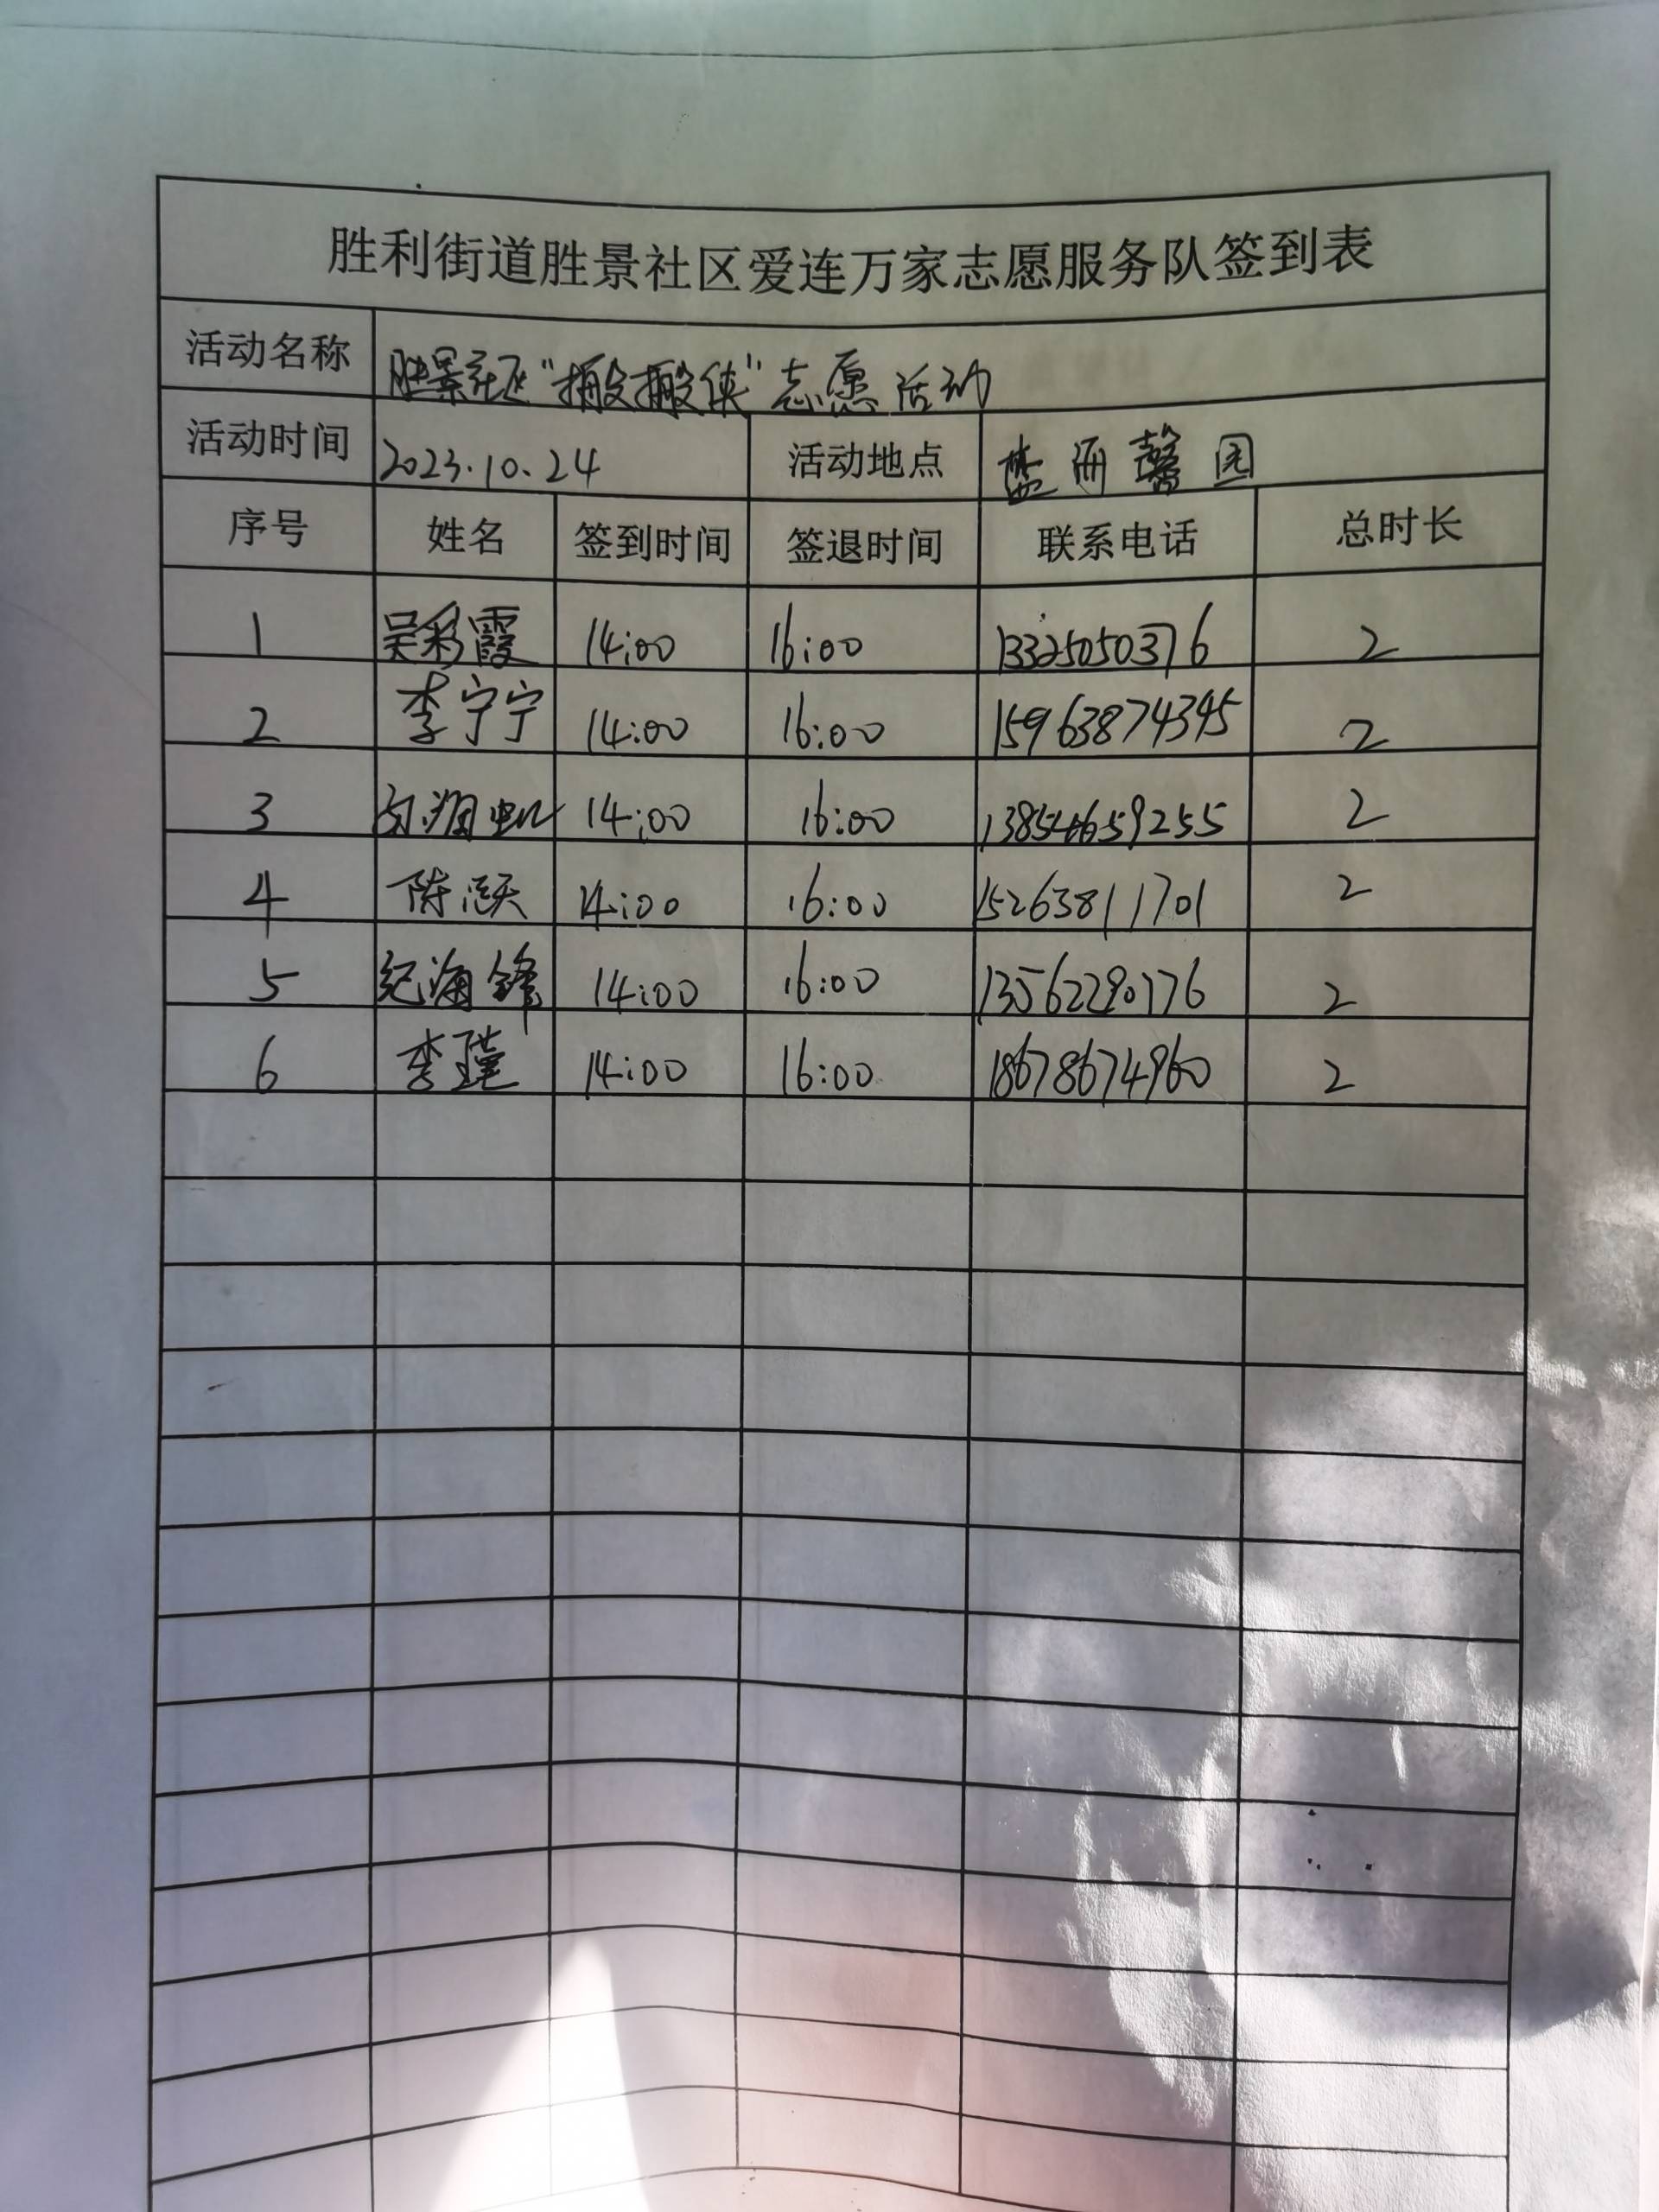 胜利街道胜景社区爱连万家志愿服务队签到表
活动名称 胜景社区“搬搬侠”志愿活动
活动时间 2023.10.24 活动地点 馨园
序号 姓名 签到时间 签退时间 联系电话 总时长
1 吴彩霞 14:00 16:00 13325050376 2
2 李宁宁 14:00 16:00 15963874345 2
3 14:00 16:00 13854659255 2
4 陈灏 14:00 16:00 15263811701 2
5 纪海锋 14:00 16:00 13562290776 2
6 李瑾 14:00 16:00 18678674960 2